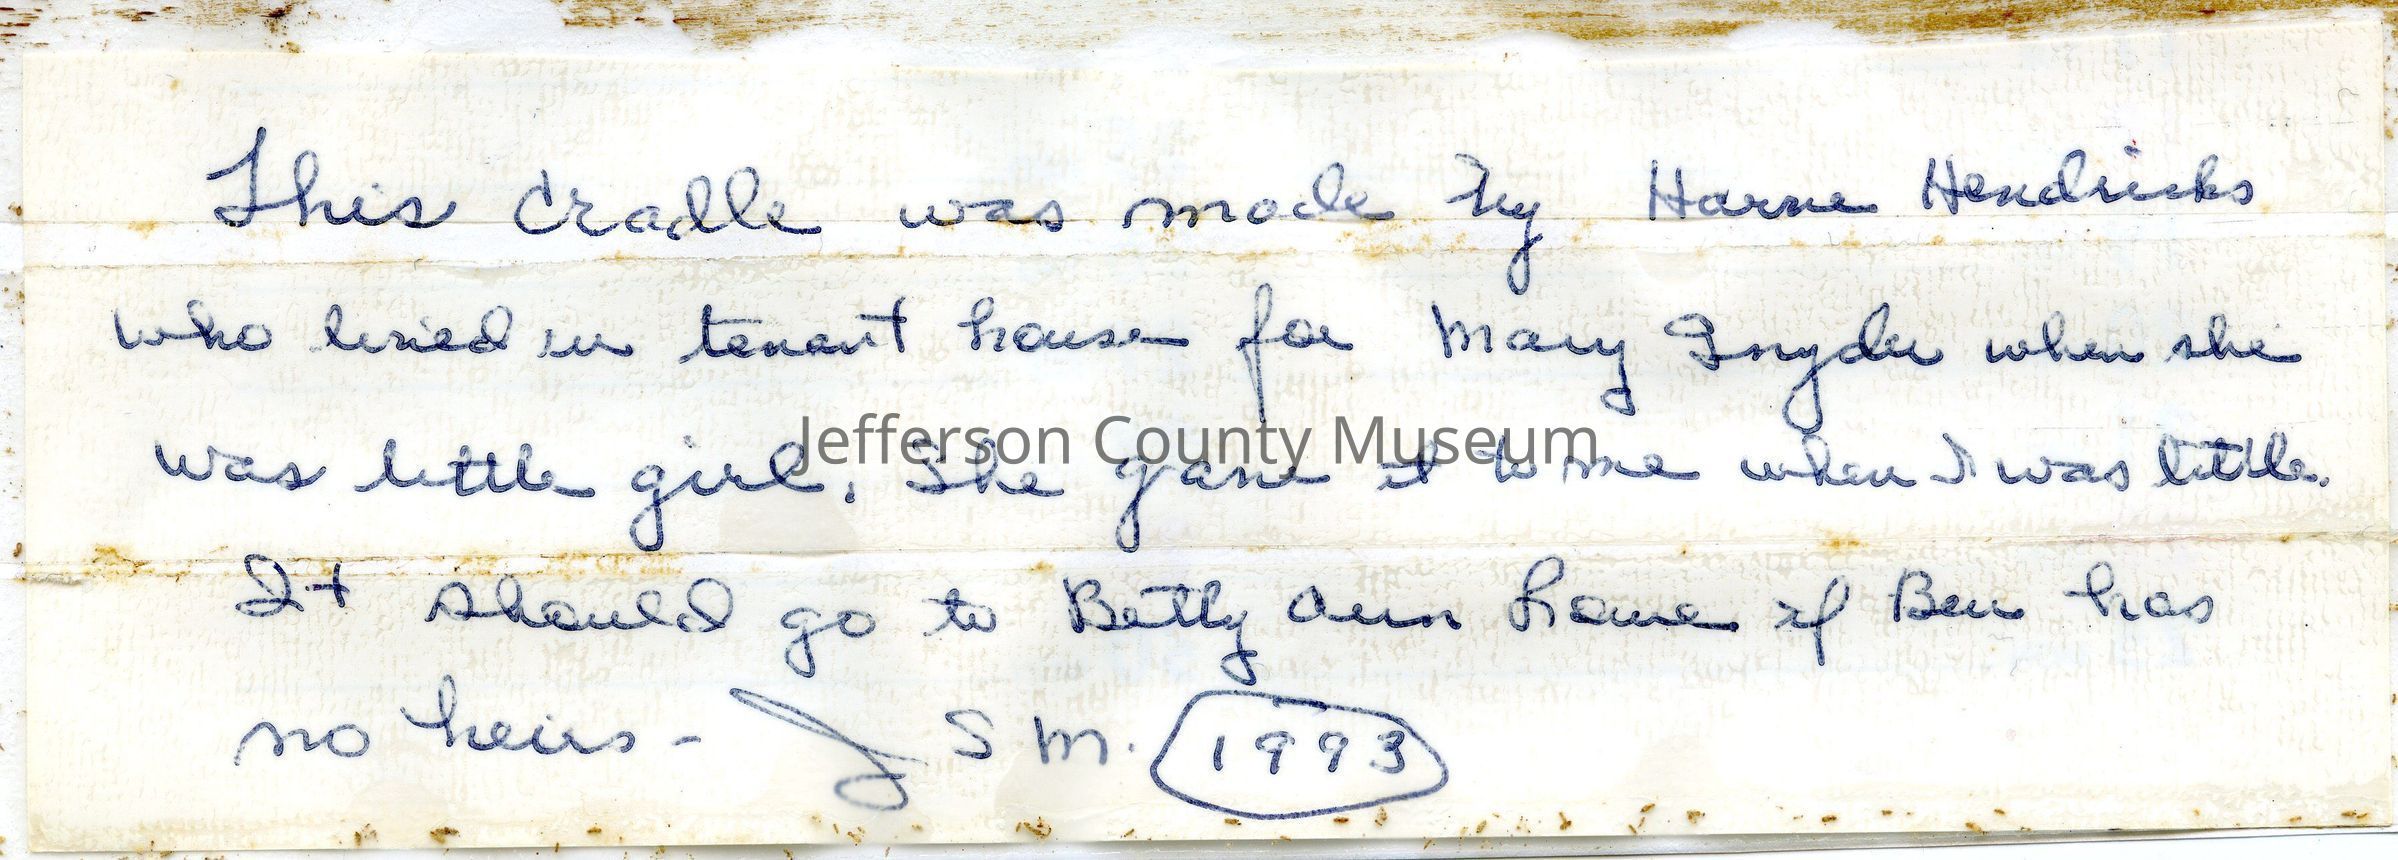 This Cradle was made by Hendricks
who lived in tenant house for Mary Snyder when she
was little girl. She gave it to me when I was little.
Jefferson County Museum
It should go to Betty Ann if Ben has
no heirs - J S M. 1993